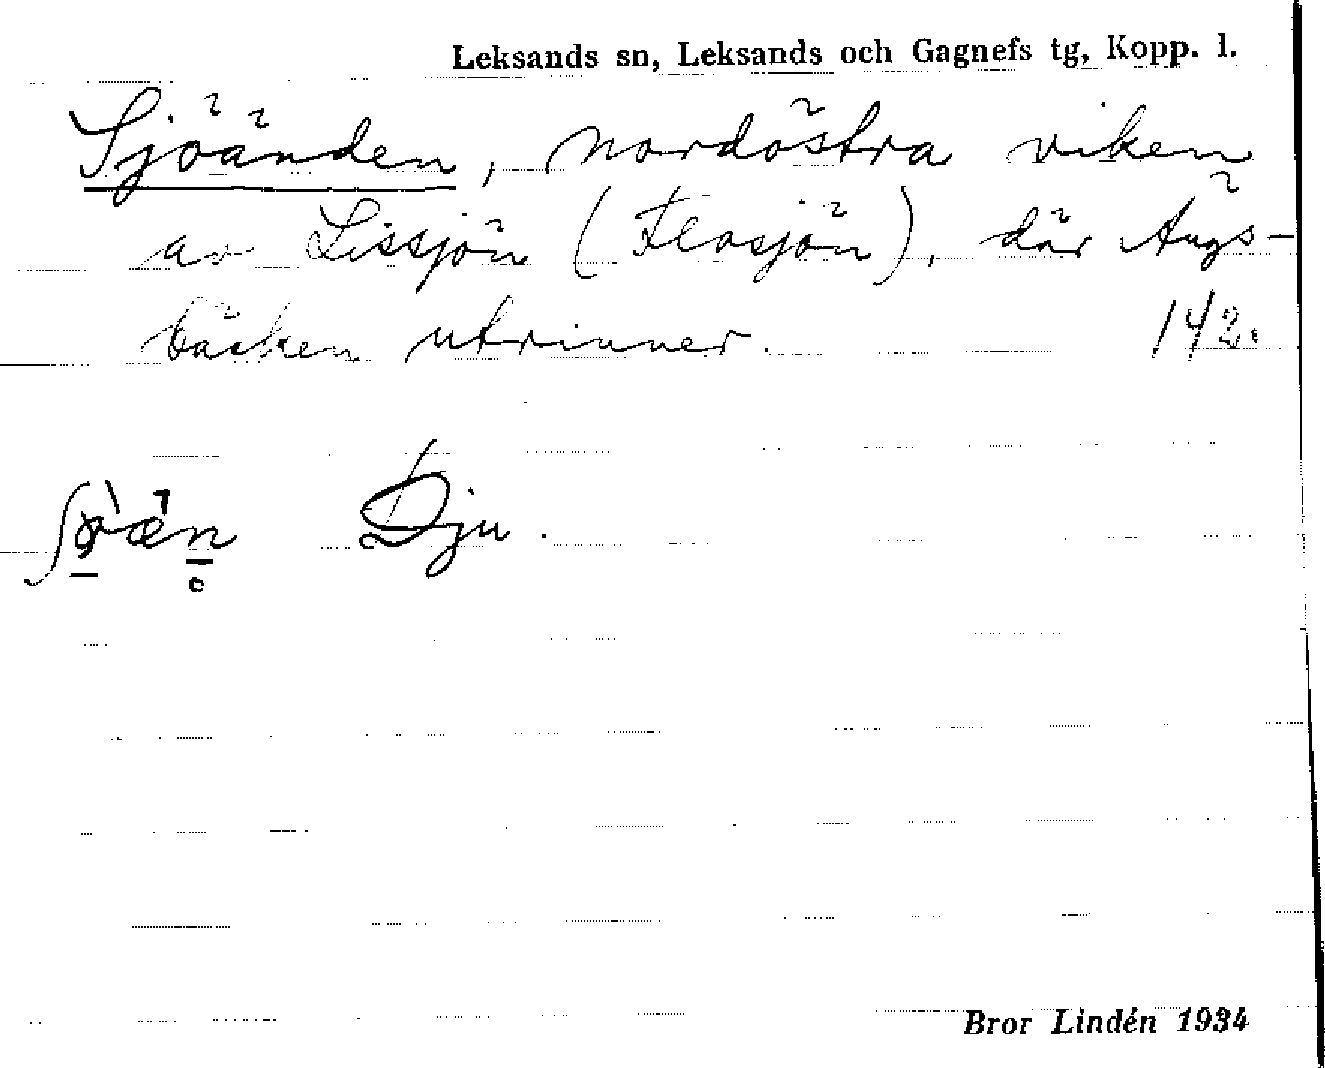 Leksands sn, Leksands och Gagnefs tg, Kopp. l.
Sjöänden, nordöstra viken
av Lissjön (Flosjön), där Ängs-
bäcken utrinner. 142.
Dju.
Bror Lindén 1934